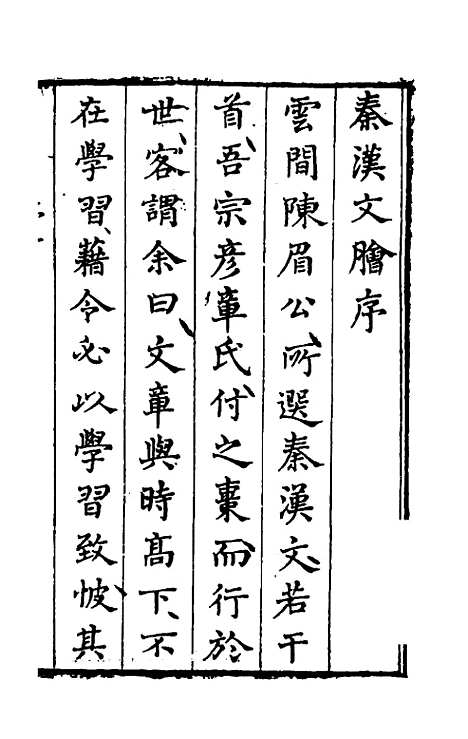 秦漢文膾序
雲間陳眉公所選秦漢文若干
首吾宗彦章氏付之棗而行於
世客謂余曰文章與時髙下不
在學習藉令必以學習致彼其